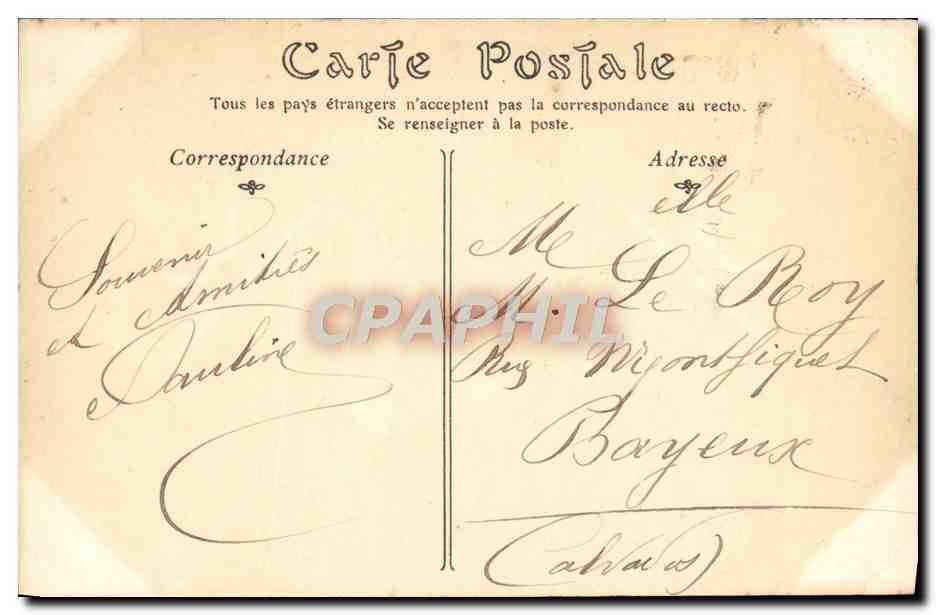 Carte Postale
Tous les pays étrangers n'acceptent pas la correspondance au recto.
Se renseigner à la poste.
Correspondance
Souvenir
et Amitiés
Pauline
Adresse
Mlle
M
M. Le Roy
Rue Montfiquet
Bayeux
(Calvados)
CPAPHIL